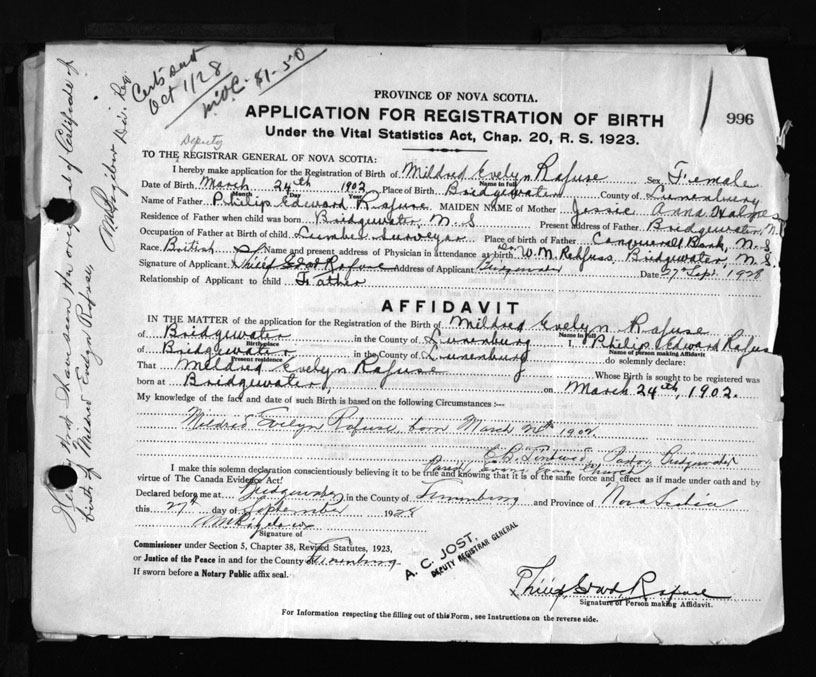 Certs sent
Oct 1/28
M.O.C. $1-50
I have seen the original Certificate of
birth of Mildred Evelyn Rafuse
Div. Reg
PROVINCE OF NOVA SCOTIA.
APPLICATION FOR REGISTRATION OF BIRTH
996
Under the Vital Statistics Act, Chap. 20, R. S. 1923.
Deputy
TO THE REGISTRAR GENERAL OF NOVA SCOTIA:
I hereby make application for the Registration of Birth of Mildred Evelyn Rafuse Sex Female
Name in full
Date of Birth March 24th 1902 Place of Birth Bridgewater County of Lunenburg
Month Day Year
Name of Father Philip Edward Rafuse MAIDEN NAME of Mother Jessie Anna
Residence of Father when child was born Bridgewater, N.S Present address of Father Bridgewater, N.
Occupation of Father at Birth of child Lumber Surveyor Place of birth of Father Conquerall Bank, N.S
Race British Name and present address of Physician in attendance at birth Dr. W. M. Bridgewater, N.S.
Signature of Applicant Philip Edwd Rafuse Address of Applicant Bridgewater Date 27th Sept. 1928
Relationship of Applicant to child Father
AFFIDAVIT
IN THE MATTER of the application for the Registration of the Birth of Mildred Evelyn Rafuse
Name in Full
of Bridgewater in the County of Lunenburg I, Philip Edward Rafuse
Birthplace Name of person making Affidavit
of Bridgewater in the County of Lunenburg do solemnly declare:
Present residence
That Mildred Evelyn Rafuse Whose Birth is sought to be registered was
born at Bridgewater, on March 24th, 1902.
My knowledge of the fact and date of such Birth is based on the following Circumstances:—
Mildred Evelyn Rafuse born March 24th 1902
Pastor Bridgewater
Church
I make this solemn declaration conscientiously believing it to be true and knowing that it is of the same force and effect as if made under oath and by
virtue of The Canada Evidence Act.
Declared before me at Bridgewater in the County of Lunenburg and Province of Nova Scotia
this 27th day of September 1928
Signature of
Commissioner under Section 5, Chapter 38, Revised Statutes, 1923,
or Justice of the Peace in and for the County Lunenburg
If sworn before a Notary Public affix seal.
A. C. JOST.
DEPUTY REGISTRAR GENERAL
Philip Edwd Rafuse
Signature of Person making Affidavit.
For Information respecting the filling out of this Form, see Instructions on the reverse side.